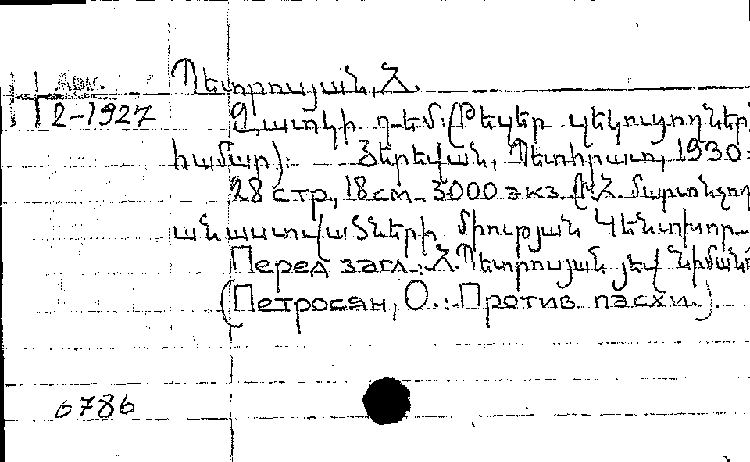 Арм.
2-1927
Պետրոսյան, Հ.
Զատոկի դեմ: (Թեզեր զեկուցողների
համար):    Յերեվան, Պետհրատ, 1930:
28 стр., 18 см. 3000 экз. (Հ.Հ. մարտնչող
անաստվածների միության Կենտխոր-
Перед загл.: Հ. Պետրոսյան յեվ
(Петросян, О.: Против пасхи.).
6786